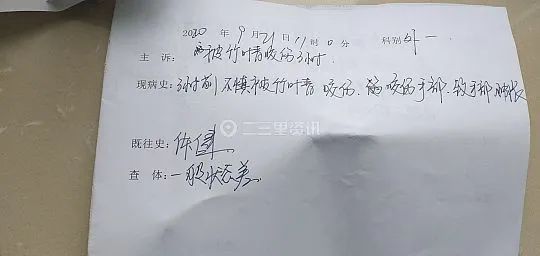 2020 年 9 月 21 日 11 时 0 分 科别 外一
主 诉: 被竹叶青咬伤3小时.
现病史: 3小时前不慎被竹叶青咬伤. 咬伤手部. 致手部肿胀
二三里资讯
既往史: 体健.
查 体: 一般状态差.